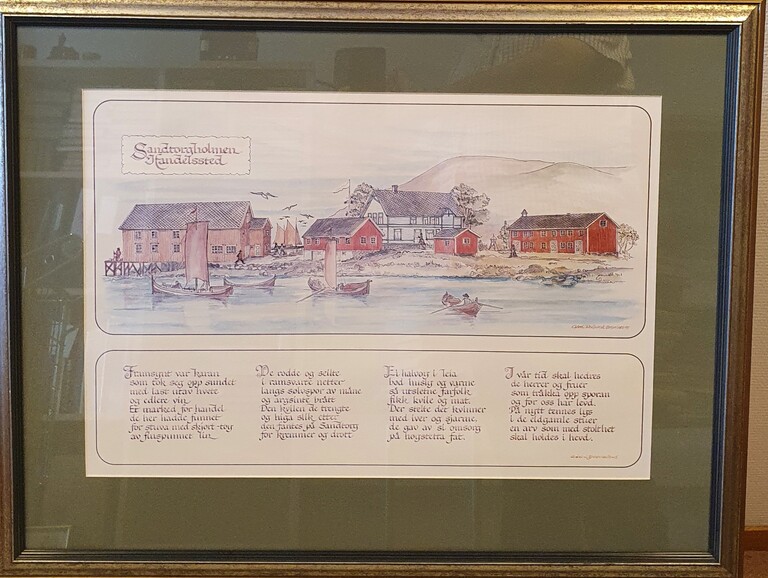 Sandtorgholmen
Handelssted
Framsynt var karan
som tok seg opp sundet
med last utav hvete
og edlere vin.
Et marked for handel
de her hadde funnet
for stuva med skjort-tøy
av finspunnet lin.
De rodde og seilte
i ramsvarte netter
langs sølvspor av måne
og argsinte brått
Den kyllen de trengte
og higa slik etter
den fantes på Sandtorg
for kremmer og drott
Ei halvøy i leia
bød husly og varme
så utslette farfolk
fikk kvile og mat.
Der stelte de kvinner
med iver og sjarme,
de gav av si omsorg
på høgstetta fat.
I vår tid skal hedres
de herrer og fruer
som tråkka opp sporan
og før oss har levd.
På nytt tennes lys
i de eldgamle stuer
en arv som med stolthet
skal holdes i hevd.